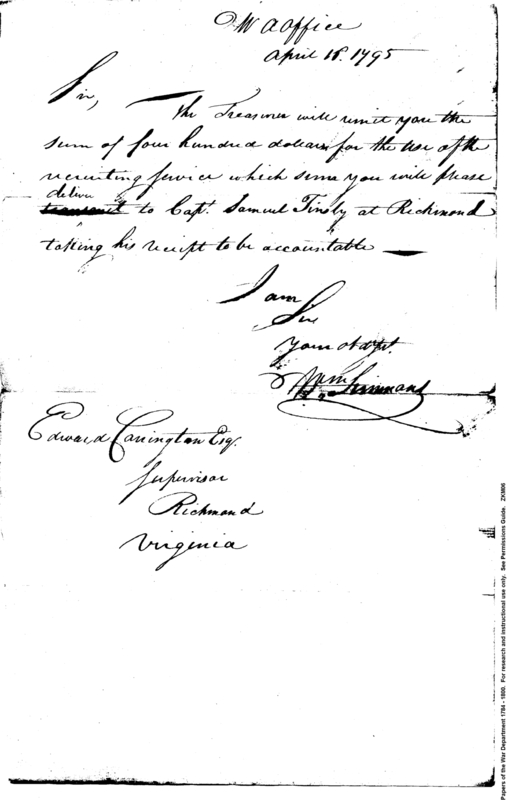 W A Office
April 18. 1795
Sir,
The Treasurer will remit you the
sum of four hundred dollars for the use of the
recruiting service which sums you will please
deliver
transmit to Capt. Samuel Tinsly at Richmond
taking his receipt to be accountable —
I am
Sir
Your obdt Svt.
Wm Simmons
Edward Carrington Esq.
Supervisor
Richmond
Virginia
Papers of the War Department 1784 - 1800. For research and instructional use only. See Permissions Guide. ZXM06